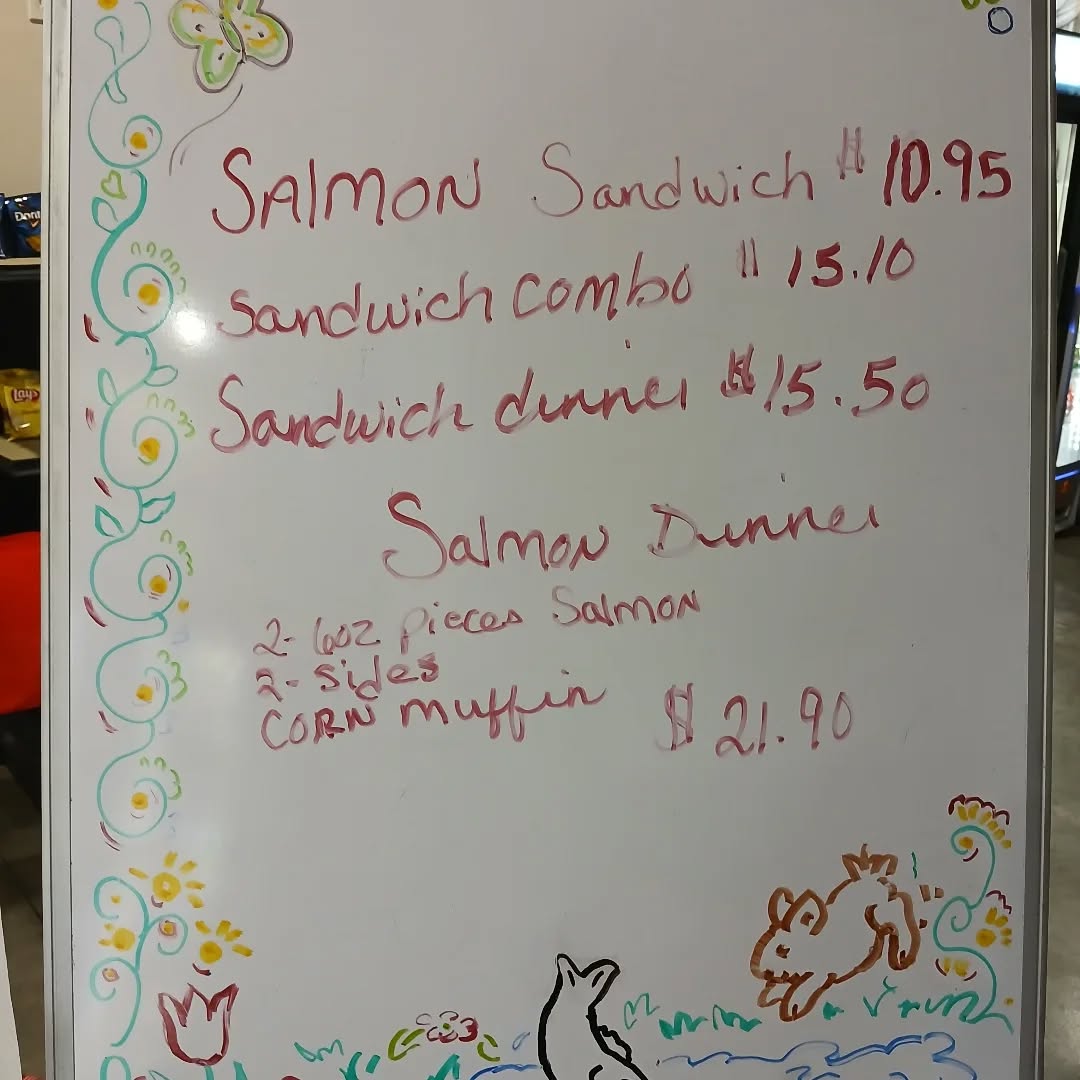 SAlMON Sandwich $10.95
Sandwich combo $15.10
Sandwich dinner $15.50
Salmon Dinner
2- 6oz pieces Salmon
2- sides
CORN muffin $21.90
Lay's